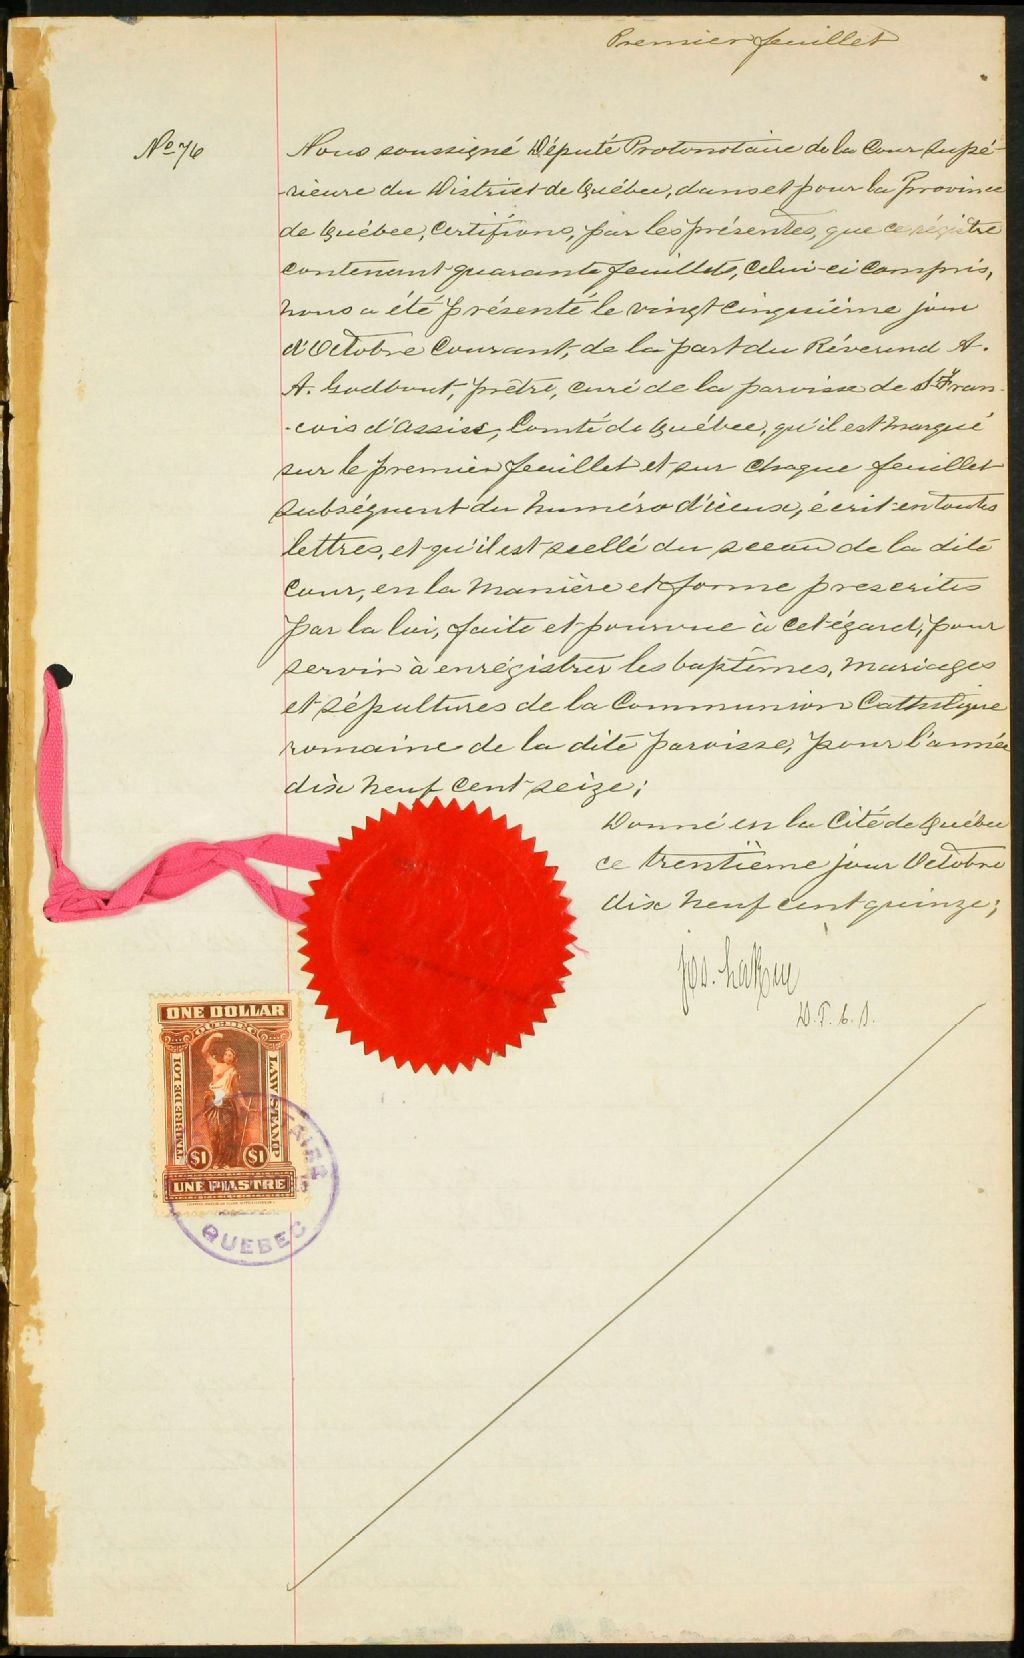 Premier feuillet
No 76
Nous soussigné Député Protonotaire de la Cour Supé-
-rieure du District de Québec, dans et pour la Province
de Québec, Certifions, par les présentes, que ce régistre
contenant quarante feuillets, celui-ci compris,
nous a été présenté le vingt cinquième jour
d'Octobre Courant, de la part du Révérend A.
A. Godbout, prêtre, curé de la paroisse de St Fran-
-cois d'Assise, Comté de Québec, qu'il est marqué
sur le premier feuillet et sur chaque feuillet
subséquent du numéro d'iceux, écrit en toutes
lettres, et qu'il est scellé du sceau de la dite
Cour, en la Manière et forme prescrites
par la loi, faite et pourvue à cet égard, pour
servir à enrégistrer les baptêmes, mariages
et sépultures de la Communion Catholique
romaine de la dite paroisse, pour l'année
dix neuf cent seize;
Donné en la Cité de Québec
ce trentième jour Octobre
dix neuf cent quinze;
Jos. LaRue
D. P. C. S.
ONE DOLLAR
QUEBEC
TIMBRE DE LOI
LAW STAMP
$1 $1
UNE PIASTRE
QUEBEC